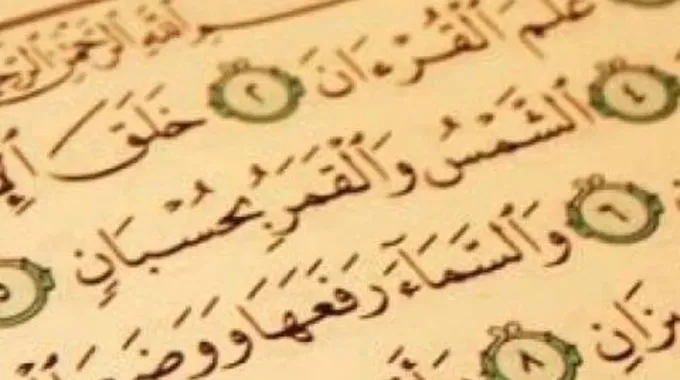 بِسْمِ ٱللَّهِ ٱلرَّحْمَٰنِ ٱلرَّحِيمِ
عَلَّمَ ٱلْقُرْءَانَ ٢ خَلَقَ
٤ ٱلشَّمْسُ وَٱلْقَمَرُ بِحُسْبَانٍ ٥
٦ وَٱلسَّمَآءَ رَفَعَهَا وَوَضَعَ
٨